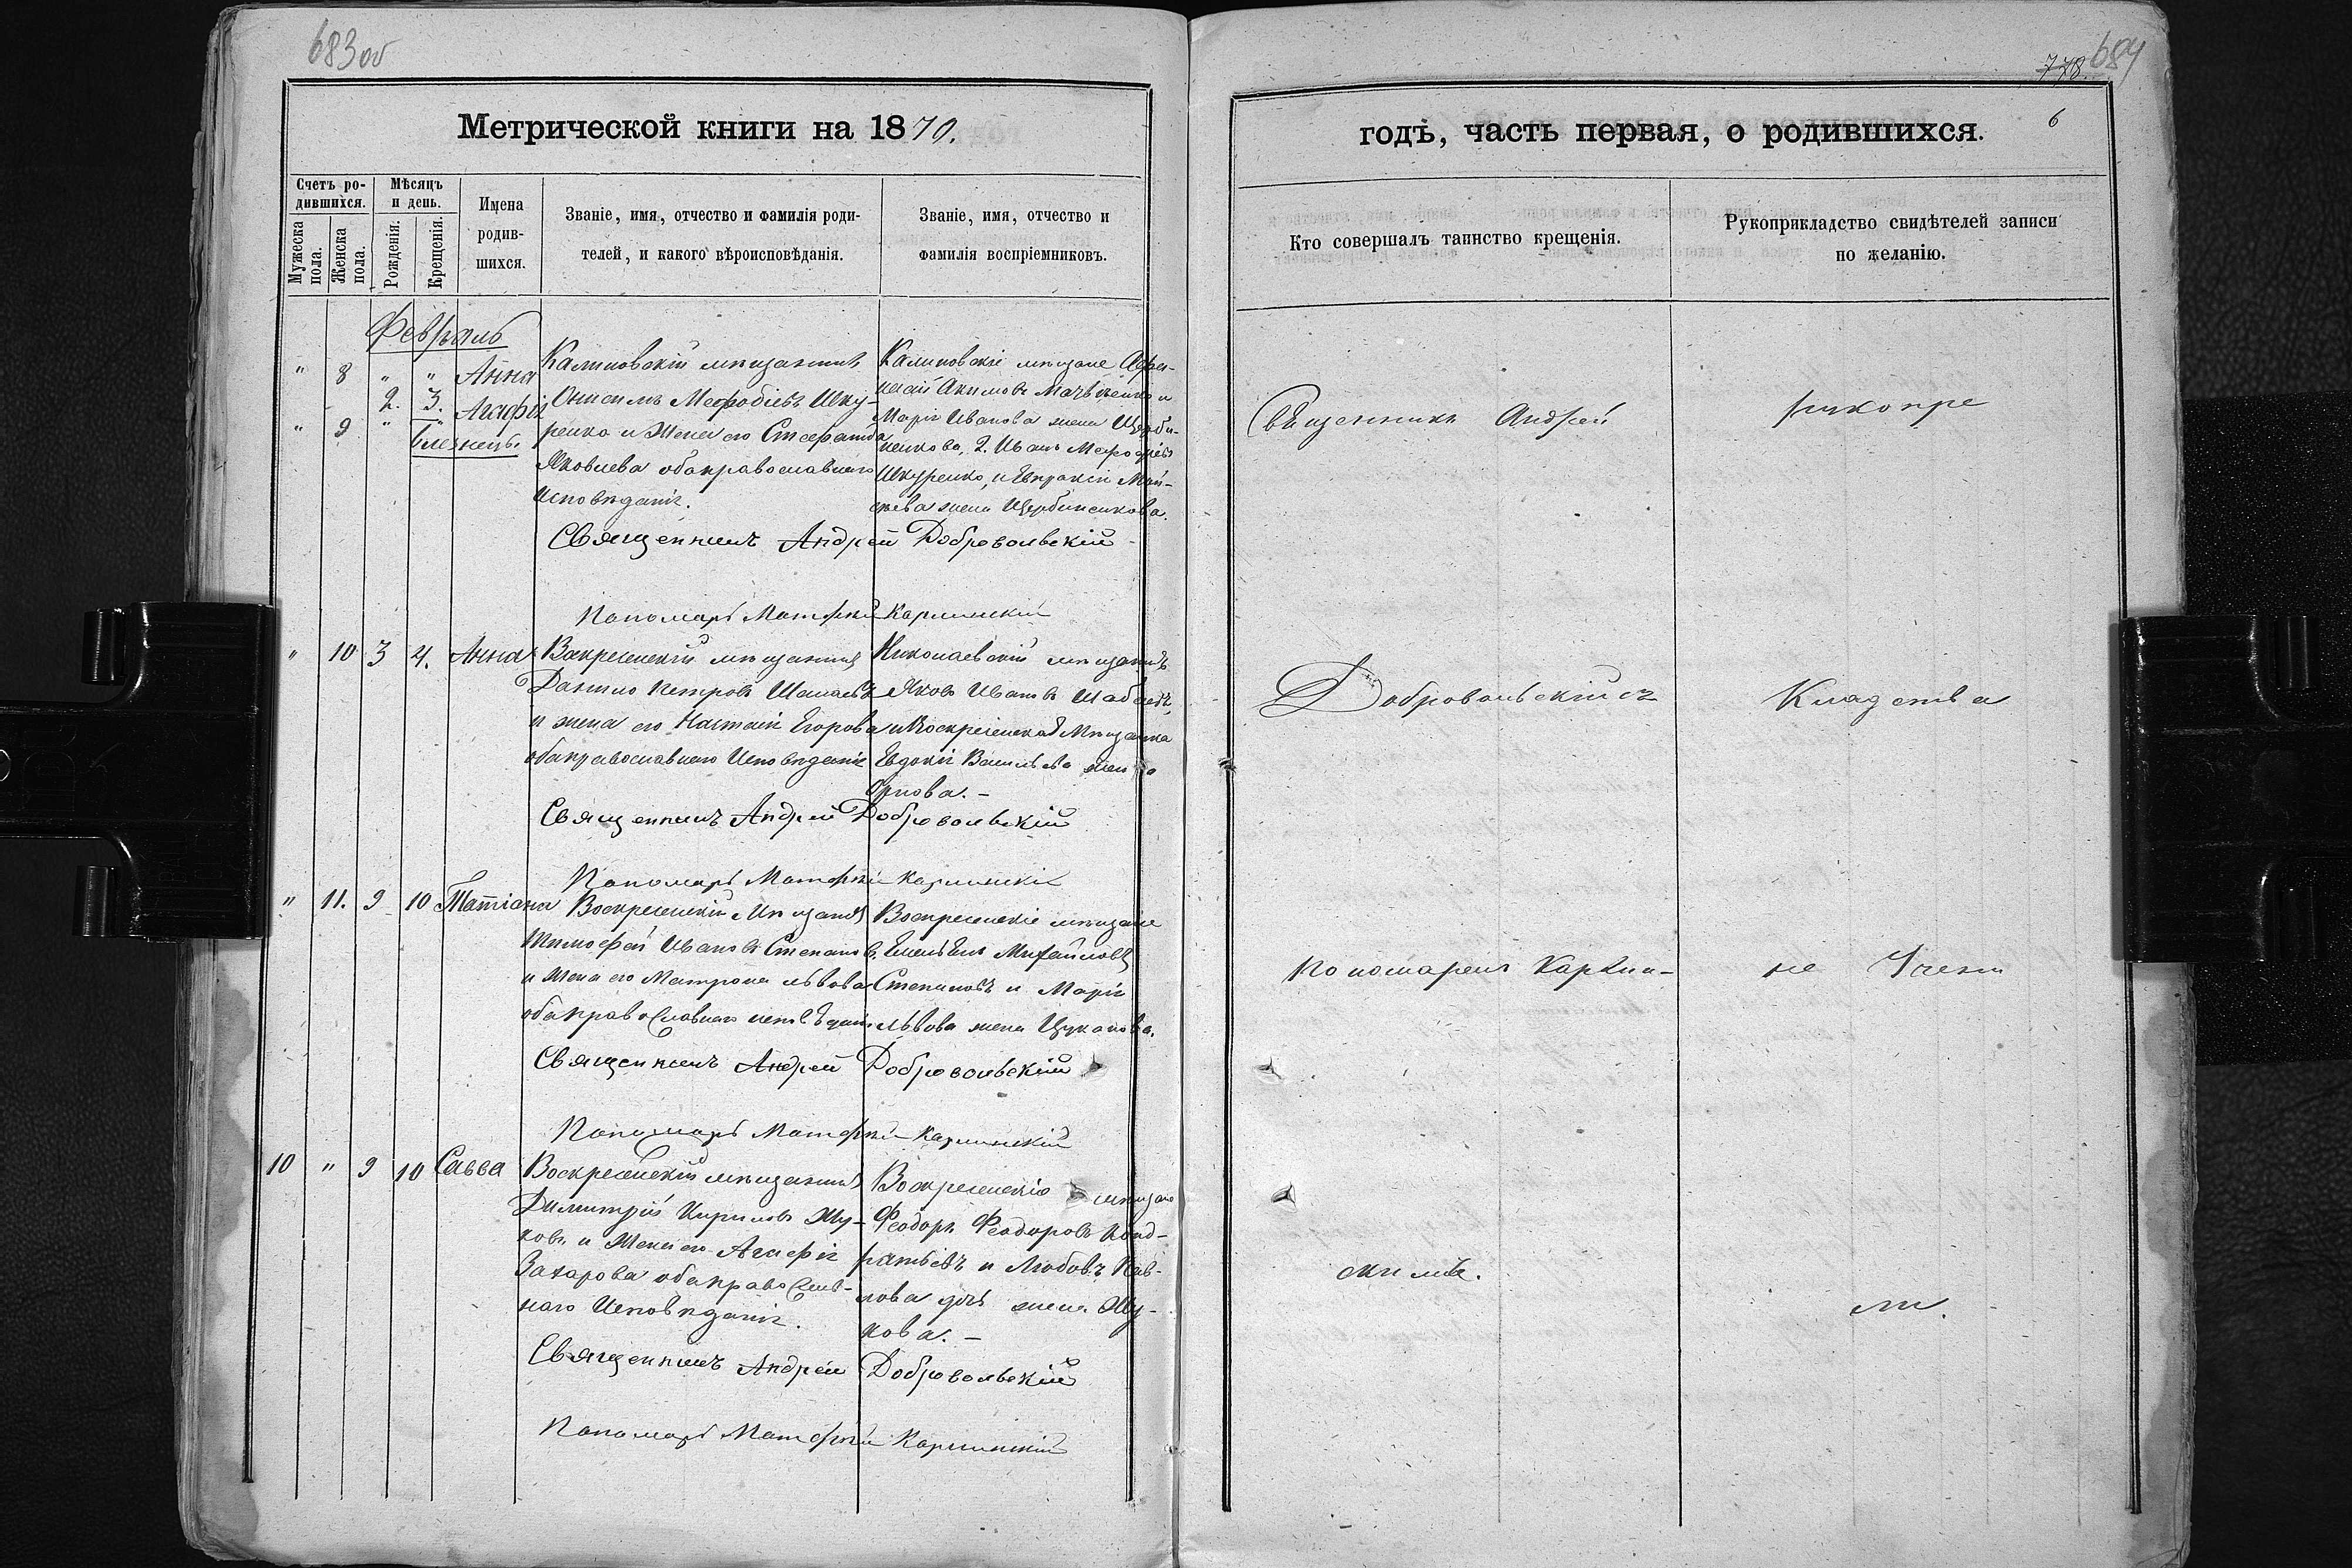 683 об
Метрической книги на 1870.
Счетъ ро-
дившихся.
Мѣсяцъ
и день.
Имена
родив-
шихся.
Мужеска
пола.
Женска
пола.
Рожденія.
Крещенія.
Званіе, имя, отчество и фамилія роди-
телей, и какого вѣроисповѣданія.
Званіе, имя, отчество и
фамилія воспріемниковъ.
Февраль
" 8 " " Анна
2. 3.
" 9 " " Агафія
Близнецы
Калиновскій мѣщанинъ
Онисимъ Мефодіевъ Шку-
ренко и Жена его Стефанида
Яковлева оба православнаго
Исповѣданія.
Калиновскіе мѣщане
Акимовъ и
Марія Иванова жена Щерби-
некова, 2. Иванъ Мефодіевъ
Шкуренко, и Евпраксія
жена Щербинекова.
Священникъ Андрей Добровольскій
Пономарь Матфей Карпинскій
" 10 3 4. Анна
Вокресенскій мѣщанинъ
Данило Петровъ
и жена его Настасія Егорова
оба православнаго Исповѣданія
Николаевскій мѣщанинъ
Яковъ Ивановъ
и Воскресенская Мѣщанка
Евдокія Васильева жена
Священникъ Андрей Добровольскій
Пономарь Матфей Карпинскій
" 11. 9 10 Татіана
Воскресенскій Мѣщанинъ
Тимофей Ивановъ Степановъ
и Жена его Матрона Львова
оба православнаго исповѣданія
Воскресенскіе мѣщане
Емельянъ Михайловъ
Степановъ и Марія
Львова жена Цуканова.
Священникъ Андрей Добровольскій
Пономарь Матфей Карпинскій
10 " 9 10 Савва
Воскресенскій мѣщанинъ
Димитрій Кириловъ Жу-
ковъ и Жена его Агафія
Захарова оба православ-
наго Исповѣданія.
Воскресенскіе мѣщане
Феодоръ Феодоровъ Конд-
ратьевъ и Любовь Пав-
лова дочь жена Жу-
кова. -
Священникъ Андрей Добровольскій
Пономарь Матфей Карпинскій
778. 684
6
годѣ, часть первая, о родившихся.
Кто совершалъ таинство крещенія.
Рукоприкладство свидѣтелей записи
по желанію.
Священникъ Андрей
Добровольскій съ
Пономаремъ Карпин-
скимъ.
рукопри
кладства
не учени
ли.